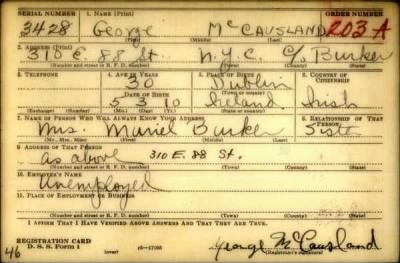 SERIAL NUMBER 1. NAME (Print) ORDER NUMBER
3428 George McCausland 203 A
(First) (Middle) (Last)
2. ADDRESS (Print)
310 E. 88 St. N.Y.C. C/o Bunker
(Number and street or R. F. D. number) (Town) (County) (State)
3. TELEPHONE 4. AGE IN YEARS 5. PLACE OF BIRTH 6. COUNTRY OF CITIZENSHIP
30 Dublin
DATE OF BIRTH (Town or county)
5 3 10 Ireland Irish
(Exchange) (Number) (Mo.) (Day) (Yr.) (State or country)
7. NAME OF PERSON WHO WILL ALWAYS KNOW YOUR ADDRESS 8. RELATIONSHIP OF THAT PERSON
Mrs. Muriel Bunker Sister
(Mr., Mrs., Miss) (First) (Middle) (Last)
9. ADDRESS OF THAT PERSON
as above 310 E. 88 St.
(Number and street or R. F. D. number) (Town) (County) (State)
10. EMPLOYER'S NAME
Unemployed
11. PLACE OF EMPLOYMENT OR BUSINESS
(Number and street or R. F. D. number) (Town) (County) (State)
I AFFIRM THAT I HAVE VERIFIED ABOVE ANSWERS AND THAT THEY ARE TRUE.
REGISTRATION CARD
D. S. S. FORM 1 George McCausland
46 (Registrant's signature)